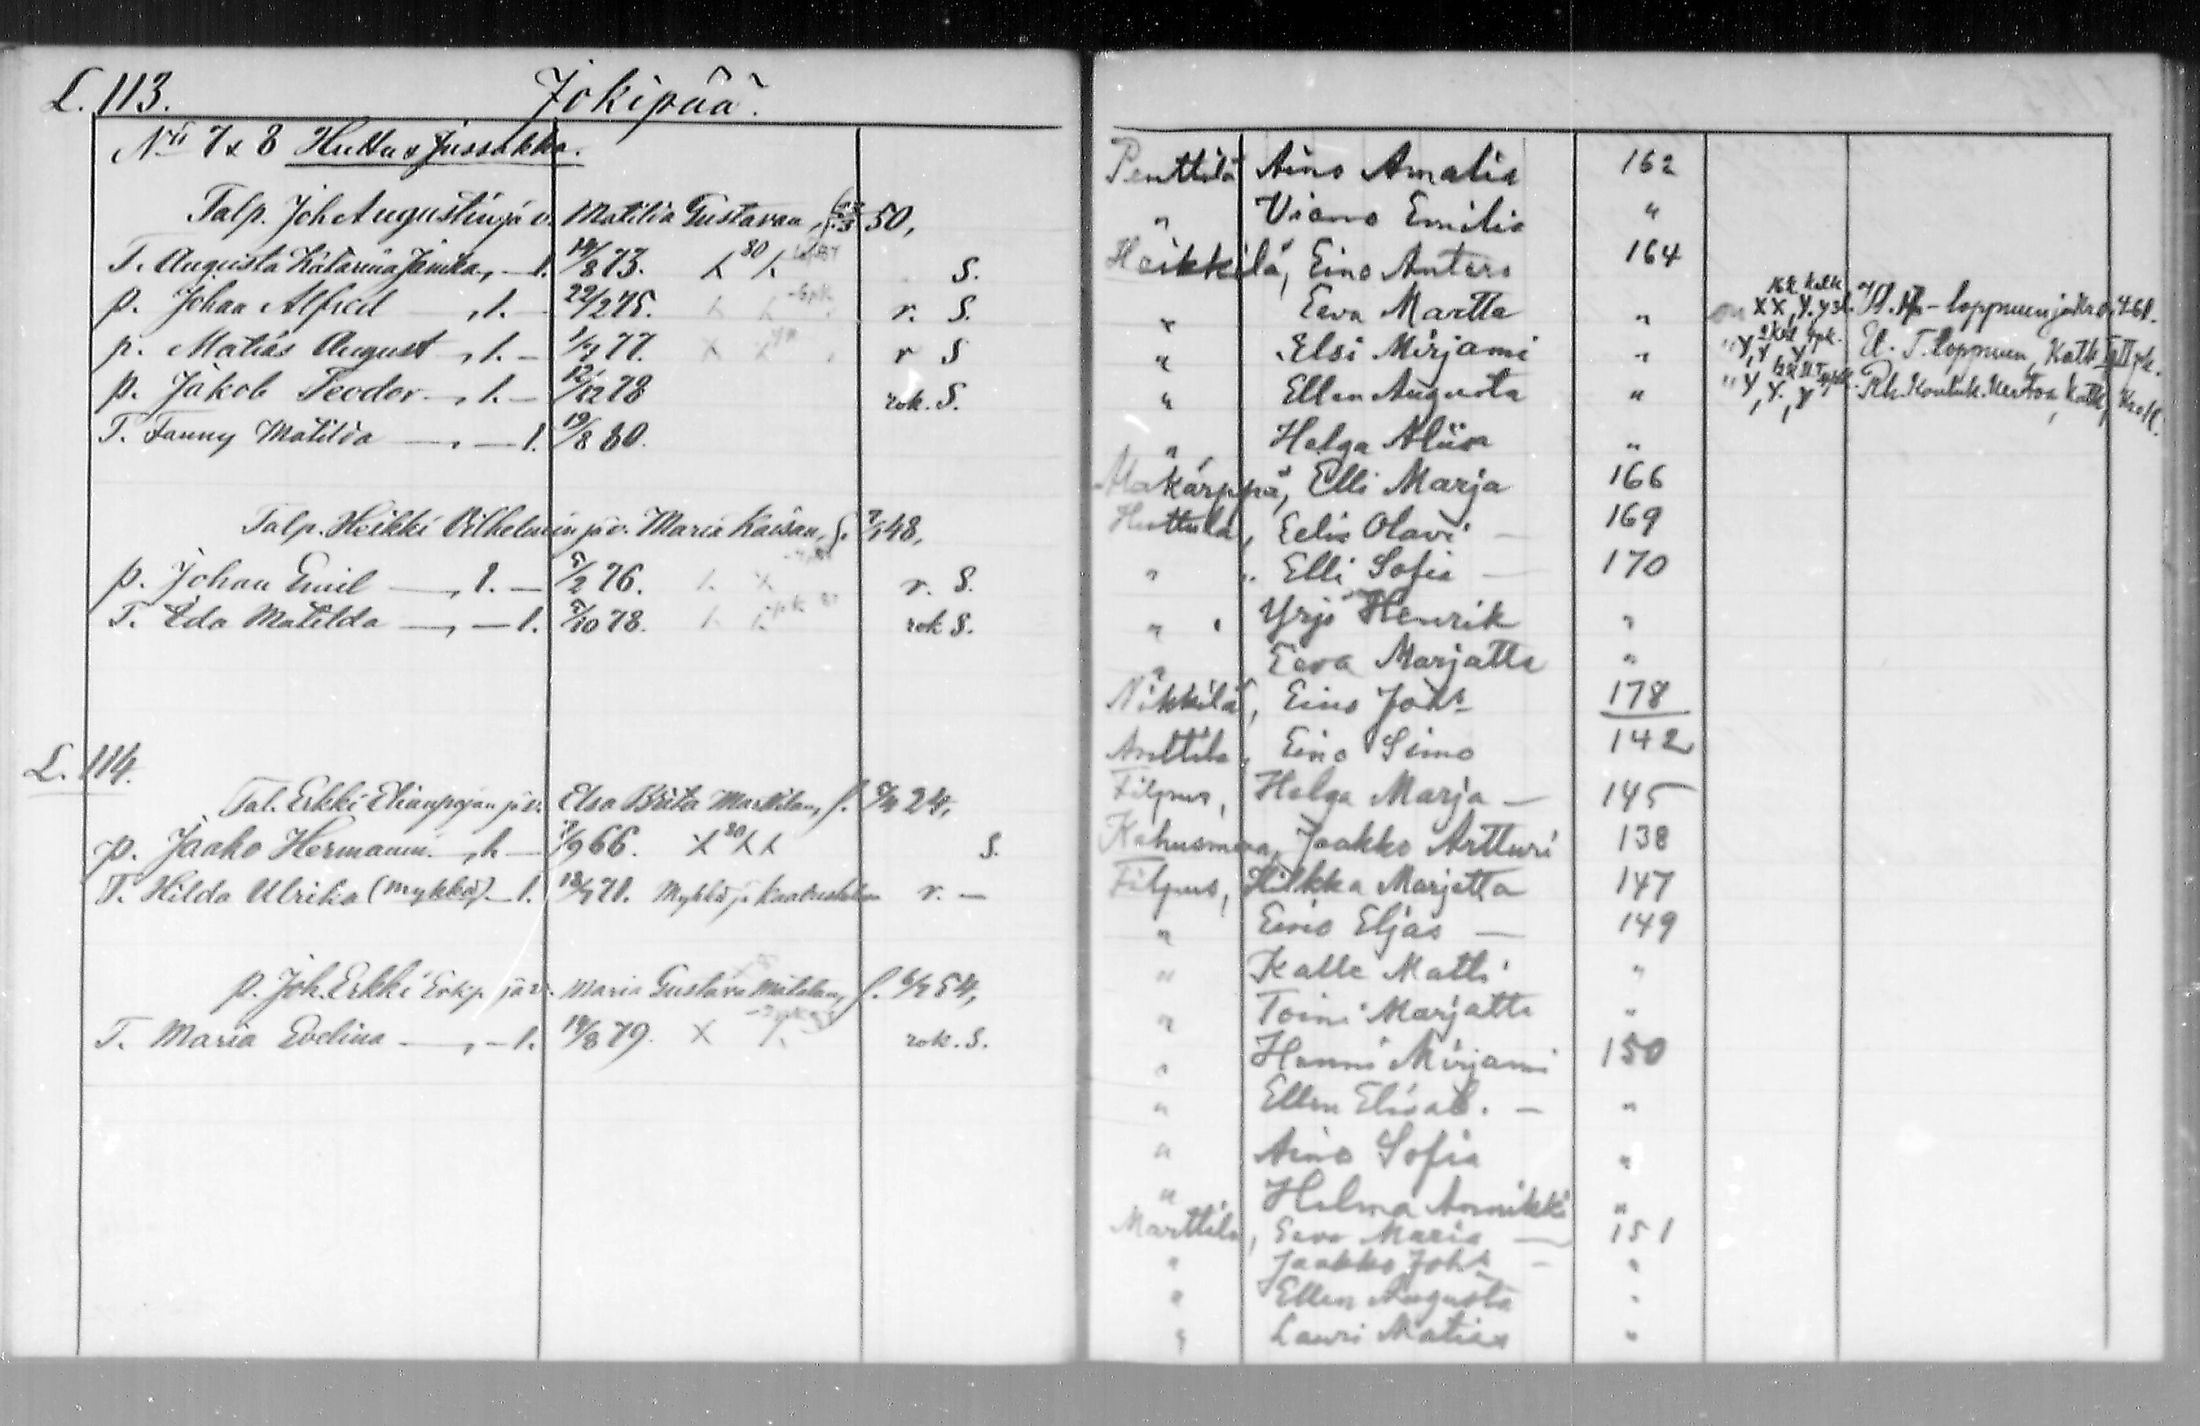 L. 113. Jokipää.
No 7 & 8 Huttu & Jussukka.
Talp. Joh Augustin ja v. Matilia Gustavan, 50,
T. Augusta Katarina Janika, — l. 14/8 73. X 80 X S.
p. Johan Alfred —„ l. — 22/2 75. X X r. S.
p. Matias August —„ l. — 77. X X r S
p. Jakob Teodor —„ l. — 12/12 78 rok. S.
T. Fanny Matilda —„— l. 19/8 80.
Talp. Heikki Vilhelmin ja v. Maria Kaisan, S. 48,
p. Johan Emil —„ l. — 5/2 76. X X r. S.
T. Eda Matilda —„— l. 5/10 78. X X rok S.
L. 114.
Tal. Erkki Elianpojan ja v. Elsa Brita Markilan, f. 24,
p. Jaako Hermanni —„ l. — 7/9 66. X 80 X X S.
T. Hilda Ulrika (mykkä) — l. 71. Mykkä ja r. —
p. Joh. Erkki Erkp. ja v. Maria Gustava Matilan, f. 54,
T. Maria Evelina —„— l. 14/8 79. X X rok. S.
Penttilä Aino Amalia 162
" Viano Emilia "
Heikkilä, Eino Antero 164
" Eeva Martta "
" Elsi Mirjami "
" Ellen Augusta "
" Helga Aliisa "
Alakärppä, Elli Marja 166
Huttula, Eelis Olavi — 169
" " Elli Sofia — 170
" " Yrjö Henrik "
" Eeva Marjatta "
Nikkilä, Eino Johs 178
Anttila, Eino Simo 142
Filpus, Helga Marja — 145
Kahusmaa, Jaakko Artturi 138
Filpus, Hilkka Marjatta 147
" Eino Eljas — 149
" Kalle Matti "
" Toini Marjatta "
" Hanni Mirjami 150
" Ellen Elisab. — "
" Aino Sofia "
" Helma Annikki "
Marttila, Eeva Maria — 151
" Jaakko Johs — "
" Ellen Augusta "
" Lauri Matias "